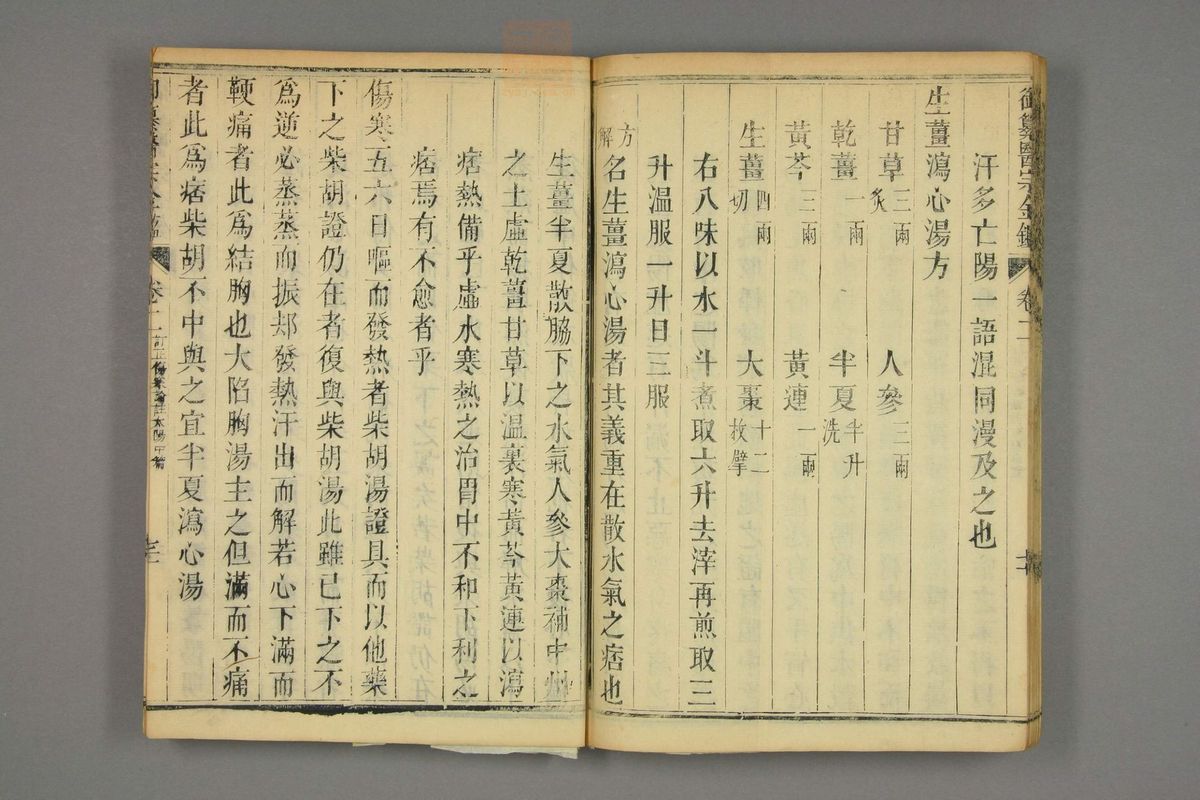 御纂醫宗金鑑 卷二
汗多亡陽一語混同漫及之也
生薑瀉心湯方
甘草三兩炙 人參三兩
乾薑一兩 半夏半升洗
黃芩三兩 黃連一兩
生薑四兩切 大棗十二枚擘
右八味以水一斗煮取六升去滓再煎取三
升溫服一升日三服
方解 名生薑瀉心湯者其義重在散水氣之痞也
生薑半夏散脇下之水氣人參大棗補中州
之土虛乾薑甘草以溫裏寒黃芩黃連以瀉
痞熱備乎虛水寒熱之治胃中不和下利之
痞焉有不愈者乎
傷寒五六日嘔而發熱者柴胡湯證具而以他藥
下之柴胡證仍在者復與柴胡湯此雖已下之不
爲逆必蒸蒸而振却發熱汗出而解若心下滿而
鞕痛者此爲結胸也大陷胸湯主之但滿而不痛
者此爲痞柴胡不中與之宜半夏瀉心湯
卷二 訂正傷寒論註太陽中篇